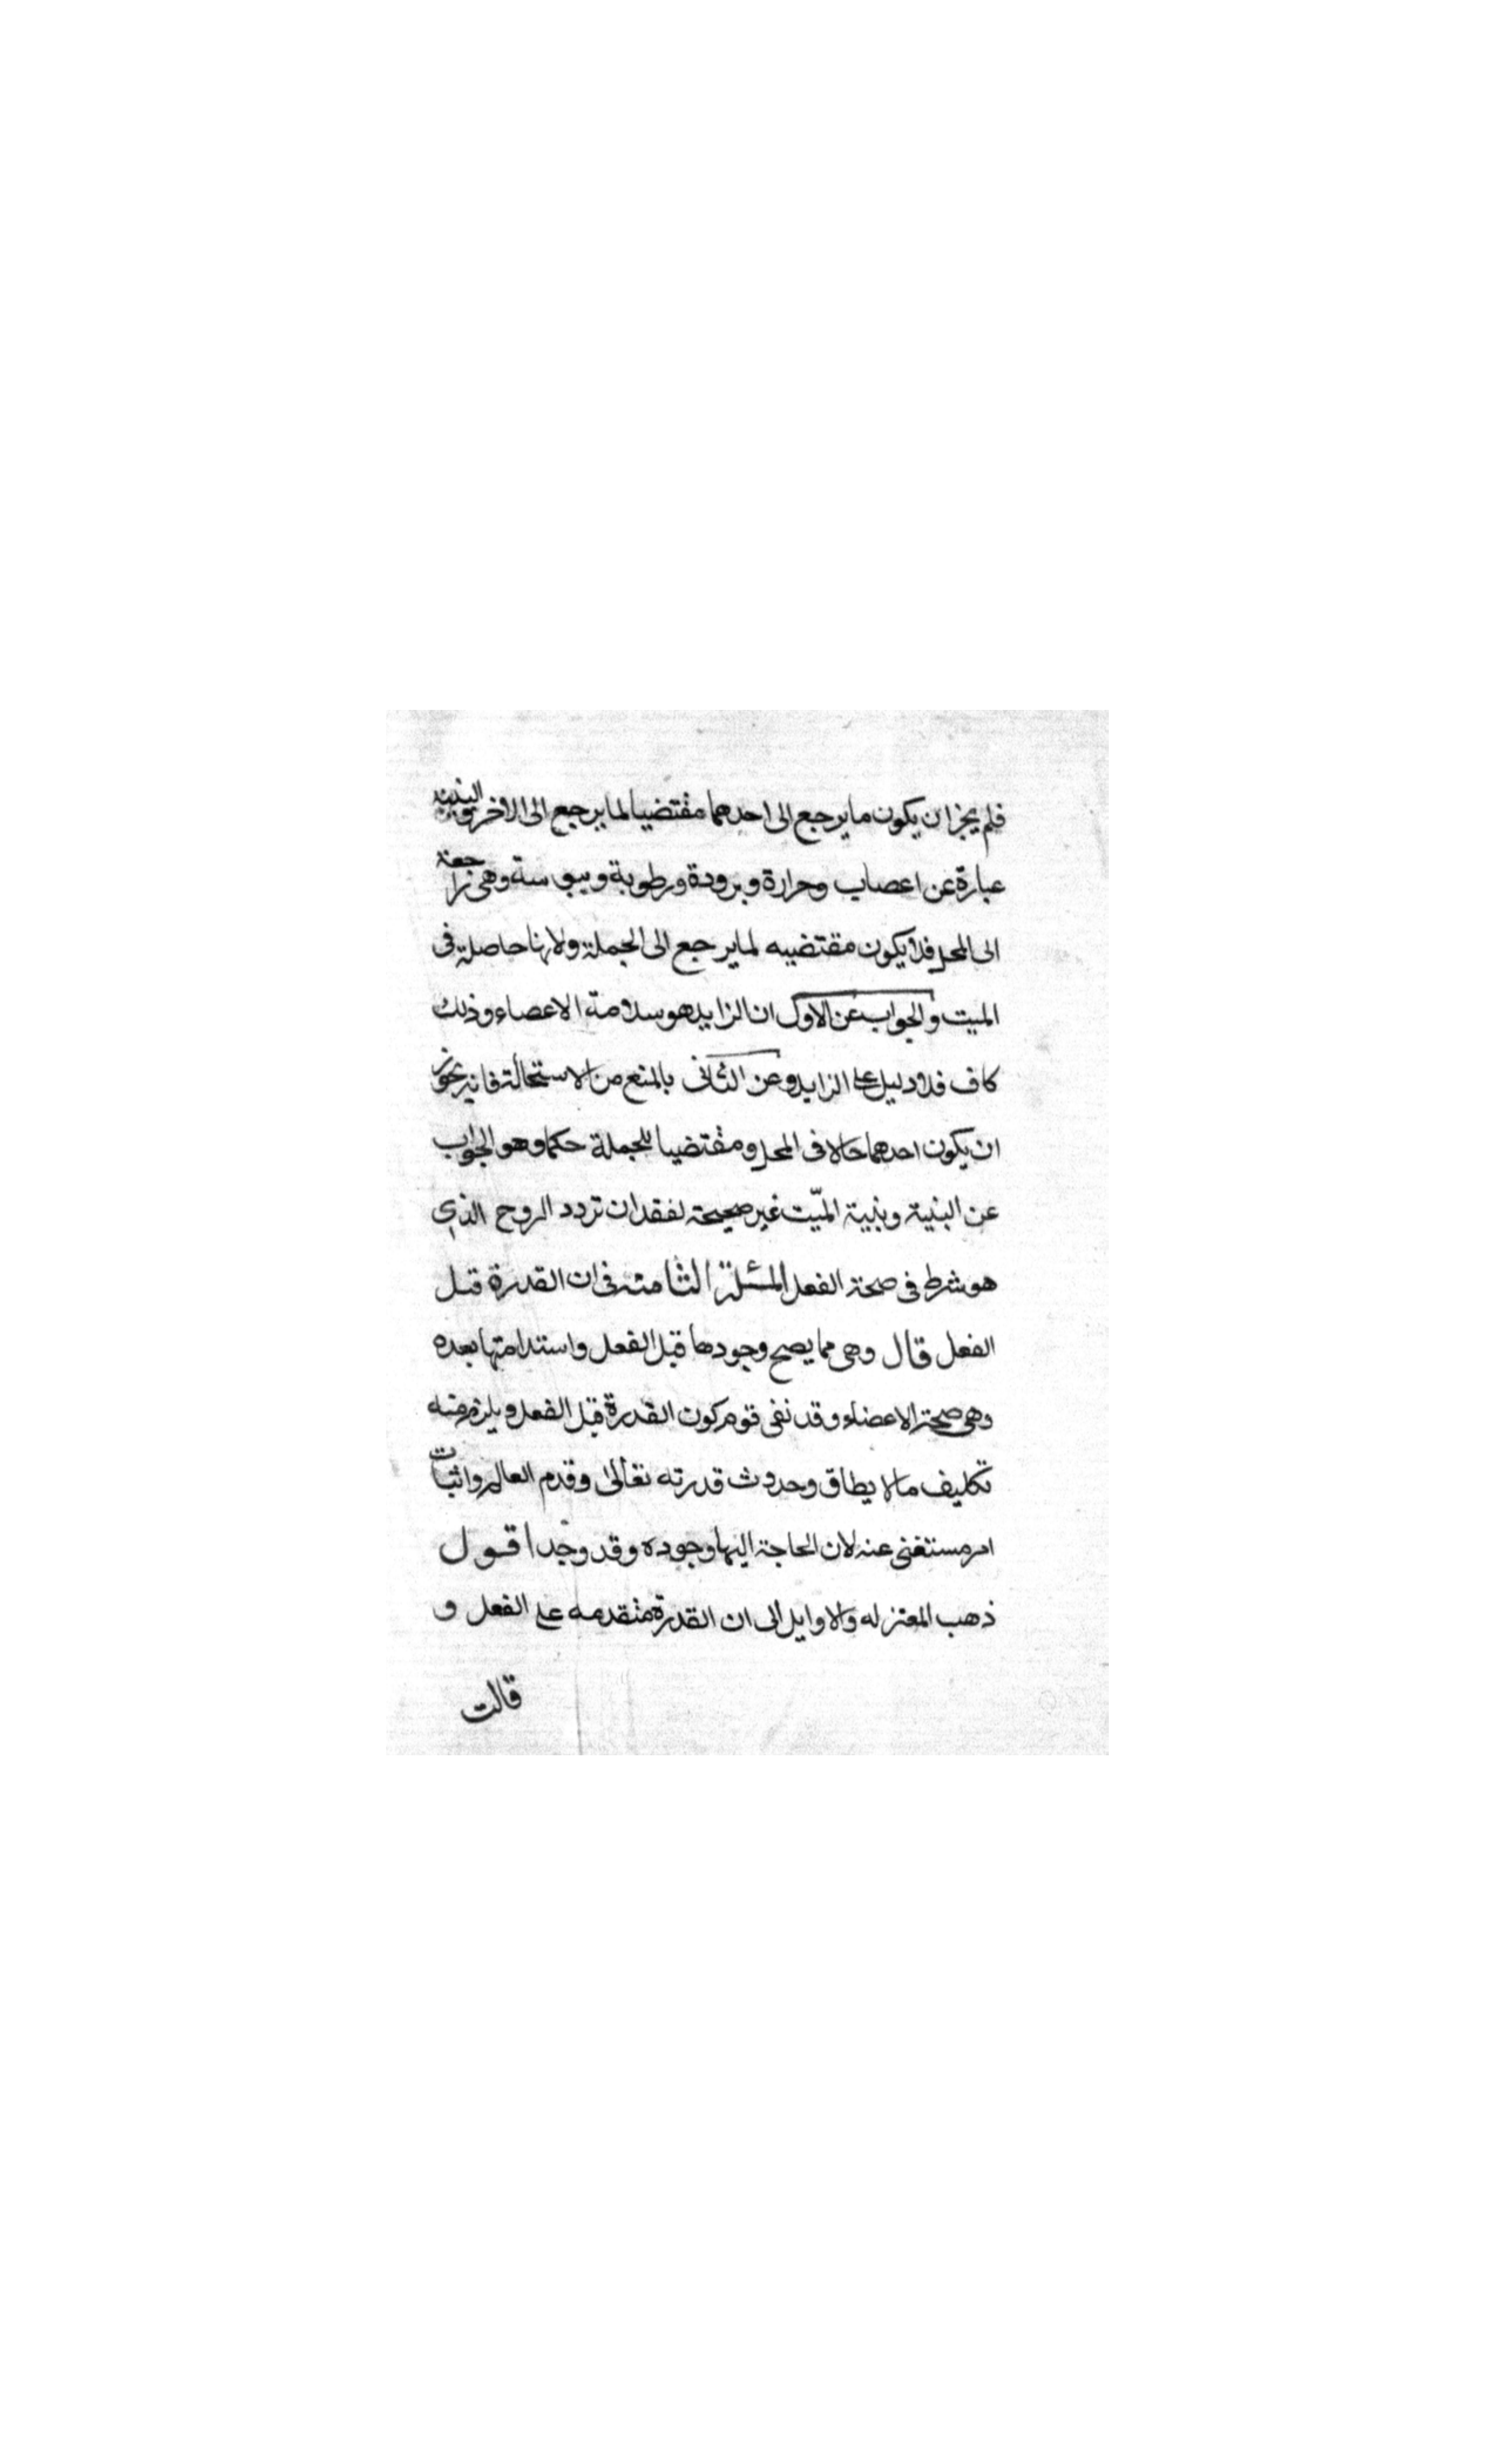 فلم يجز ان يكون ما يرجع الى احدهما مقتضيا لما يرجع الى الاخر والبنية
عبارة عن اعصاب وحرارة وبرودة ورطوبة ويبوسة وهى راجعة
الى المحل فلا يكون مقتضيه لما يرجع الى الجملة ولانها حاصلة فى
الميت والجواب عن الاول ان الزايد هو سلامة الاعصاء وذلك
كاف فلا دليل على الزايد وعن الثانى بالمنع من الاستحالة فانه يجوز
ان يكون احدهما حالا فى المحل ومقتضيا للجملة حكما وهو الجواب
عن البنية وبنية الميّت غير صحيحة لفقدان تردد الروح الذي
هو شرط فى صحة الفعل المسئلة الثامنه فى ان القدرة قبل
الفعل قال وهى مما يصح وجودها قبل الفعل واستدامتها بعده
وهى صحة الاعضاء وقد نفى قوم كون القدرة قبل الفعل ويلزم منه
تكليف ما لا يطاق وحدوث قدرته تعالى وقدم العالم واثبات
امر مستغنى عنه لان الحاجة اليها وجوده وقد وجد اقول
ذهب المعتزله والاوايل الى ان القدرة متقدمه على الفعل و
قالت